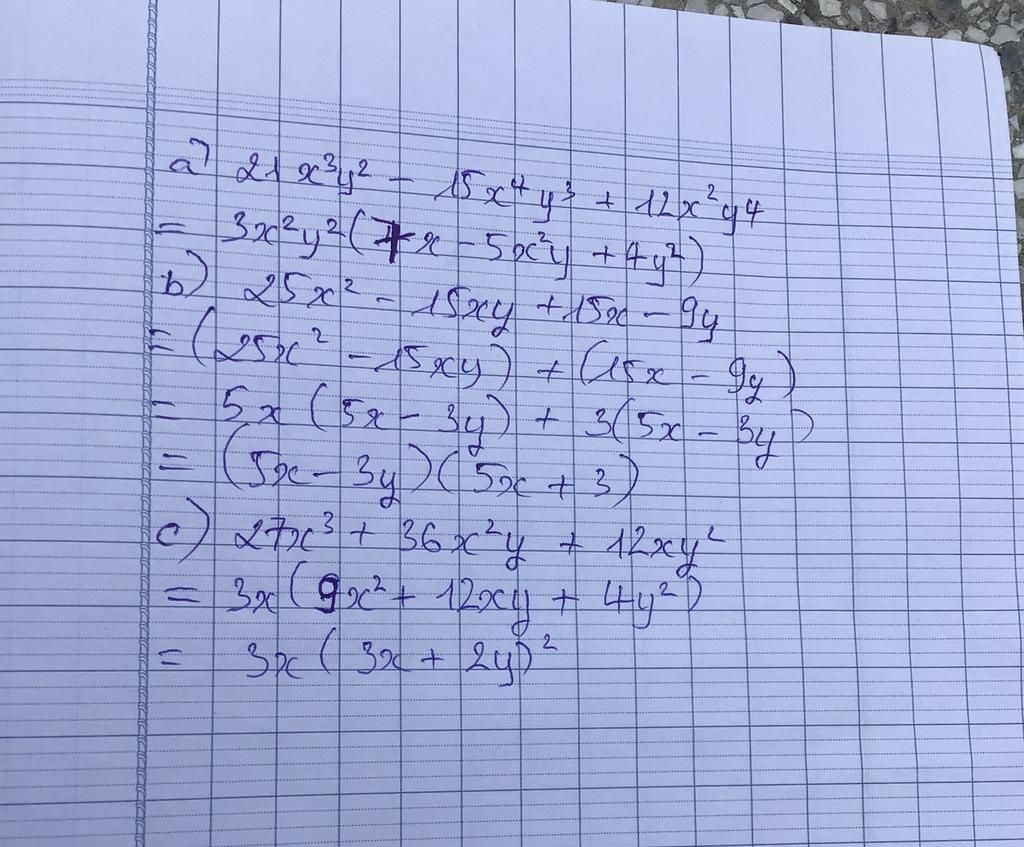 a) 21x³y² - 15x⁴y³ + 12x²y⁴
= 3x²y²(7x - 5x²y + 4y²)
b) 25x² - 15xy + 15x - 9y
= (25x² - 15xy) + (15x - 9y)
= 5x (5x - 3y) + 3(5x - 3y)
= (5x - 3y)(5x + 3)
c) 27x³ + 36x²y + 12xy²
= 3x(9x² + 12xy + 4y²)
= 3x(3x + 2y)²